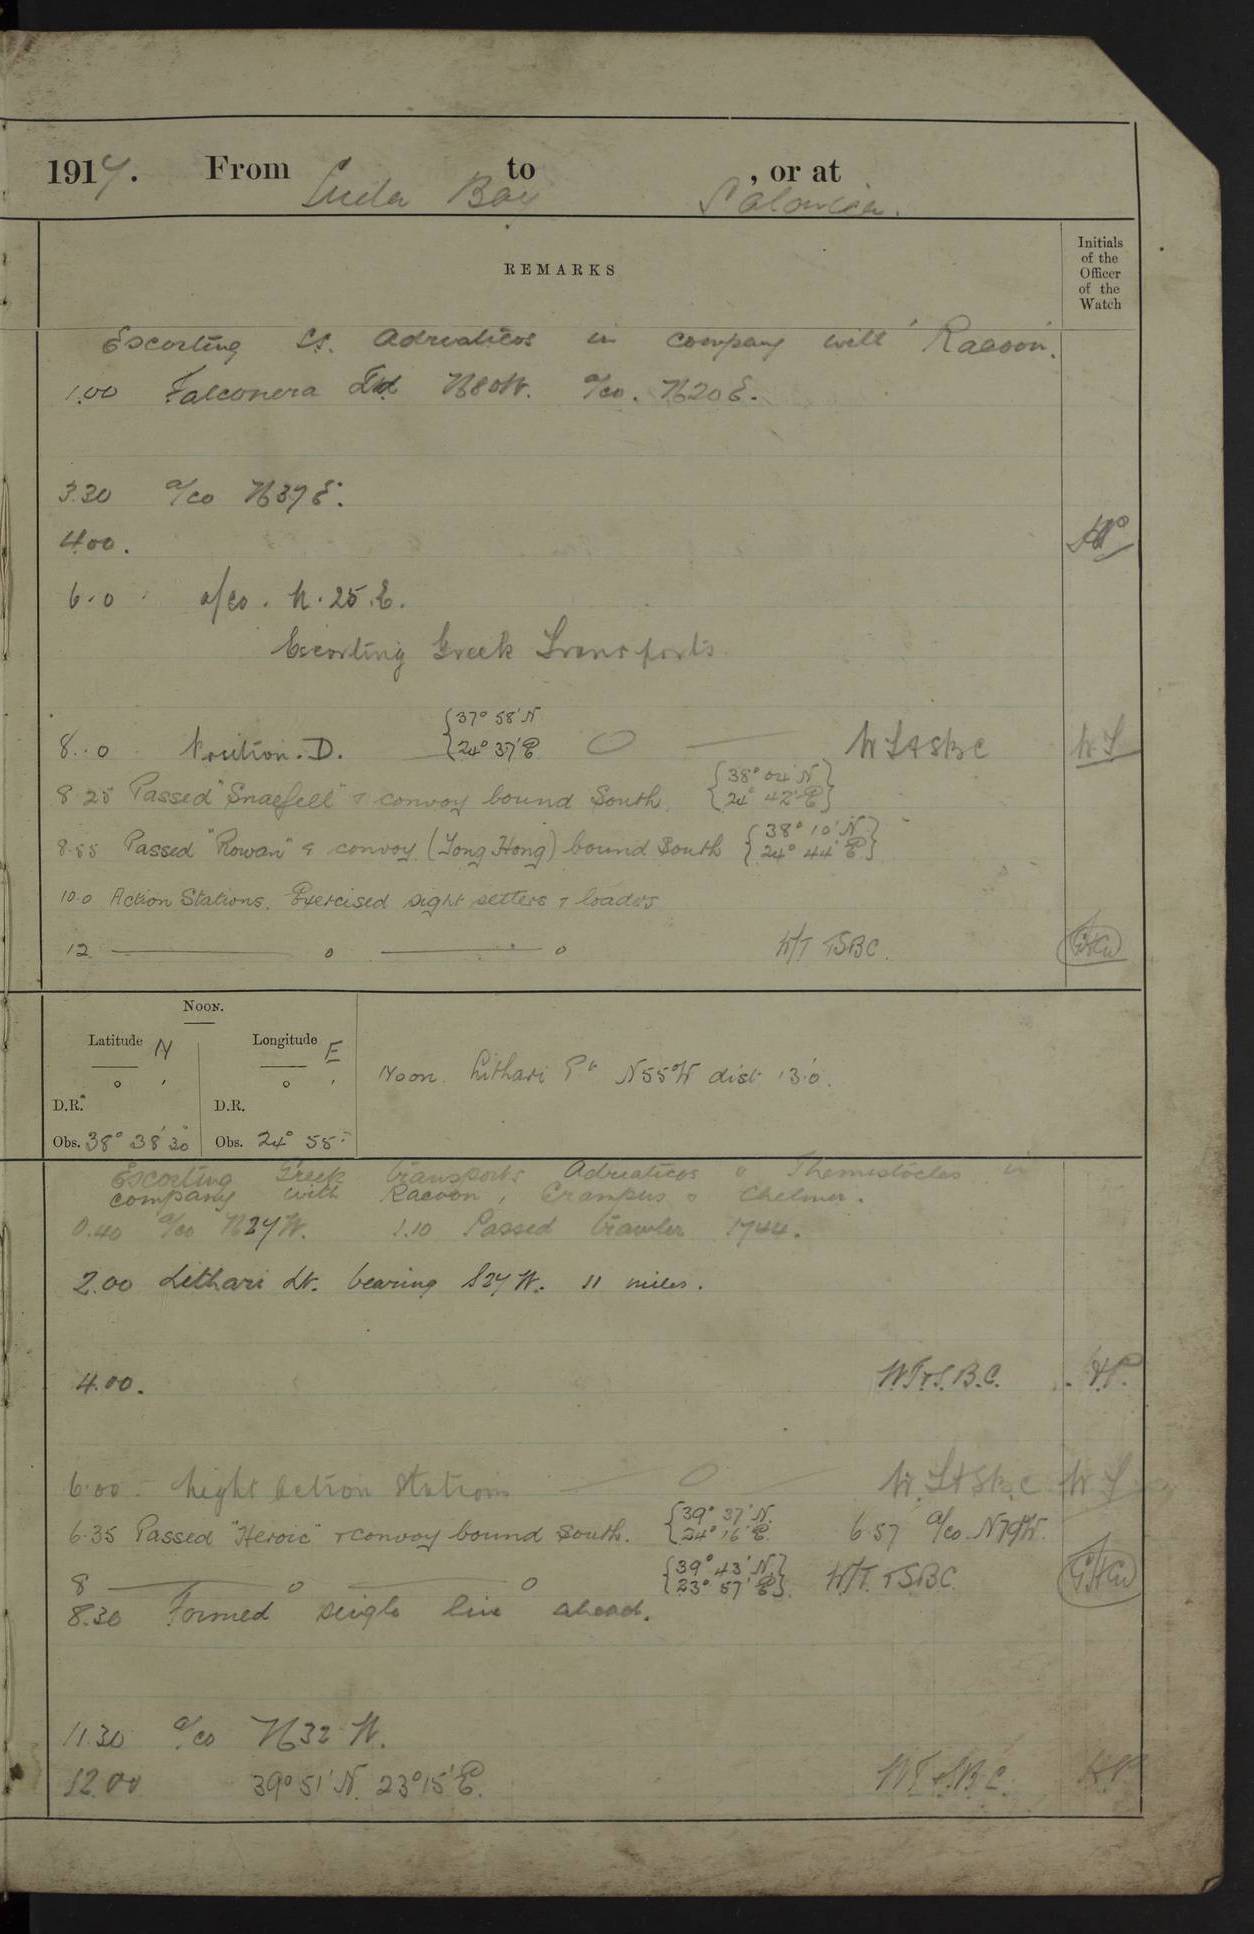 1917. From Suda Bay to , or at Salonica.
REMARKS
Initials of the Officer of the Watch
Escorting SS. Adriaticos in company with "Racoon".
1.00 Falconera N80W. a/co. N20E.
3.30 a/co N37E.
4.00.
6.0 a/co. N.25.E.
Escorting Greek Transports
8.0 Position. D. {37° 58' N
24° 37' E W.T & S.B.C W S
8.25 Passed "Snaefell" & convoy bound South. {38° 04' N
24° 42' E}
8.55 Passed "Rowan" & convoy (Yong Hong) bound South {38° 10' N
24° 44' E}
10.0 Action Stations. Exercised sight setters & loaders
12 ——— o ——— o W/T TSBC.
NOON.
Latitude N Longitude E
° ' ° '
D.R. D.R.
Obs. 38° 38' 30" Obs. 24° 55'
Noon. Lithari Pt N55°W dist 13'.0.
Escorting Greek transports Adriaticos & Themistocles in
company with Racoon, Grampus & Chelmer.
0.40 a/co N27W. 1.10 Passed trawler 1744.
2.00 Lithari Lt. bearing S27W. 11 miles.
4.00. W.T & S.B.C. H.P.
6.00 - Night Action Stations — O — W.T & S.B.C W S
6.35 Passed "Heroic" & convoy bound South. {39° 37' N.
24° 16' E 6.57 a/co N79W.
8 ——— o ——— o {39° 43' N.}
23° 57' E} W/T. TSBC.
8.30 Formed single line ahead.
11.30 a/co N32 W.
12.00 39° 51' N. 23° 15' E. W.T & S.B.C. H.P.